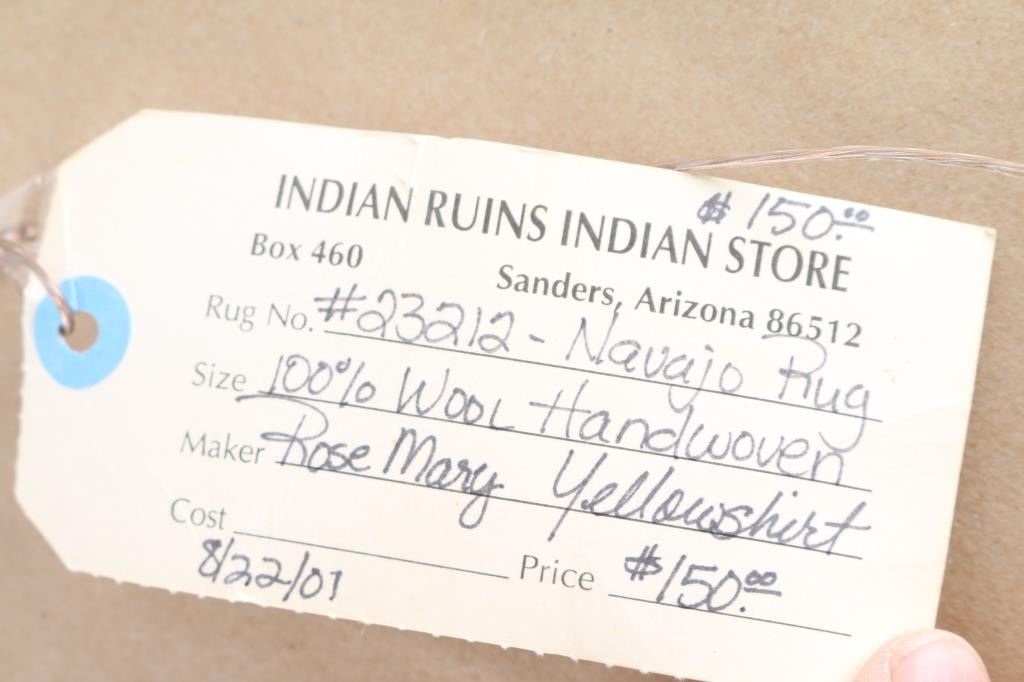 $150.00
INDIAN RUINS INDIAN STORE
Box 460
Sanders, Arizona 86512
Rug No. #23212 - Navajo Rug
Size 100% Wool Handwoven
Maker Rose Mary Yellowshirt
Cost
Price $150.00
8/22/01